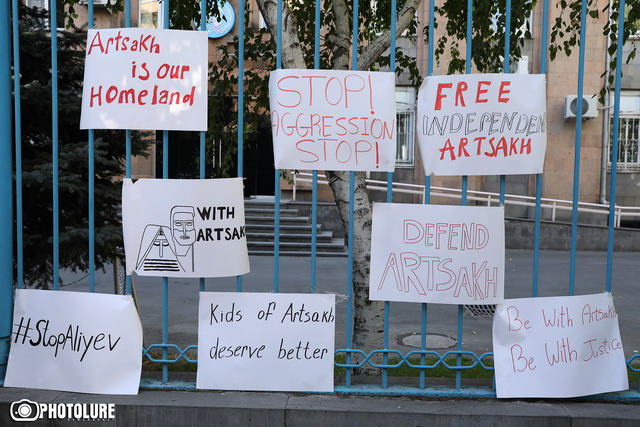 Artsakh
is our
Homeland
STOP!
AGGRESSION
STOP!
FREE
INDEPENDEN
ARTSAKH
WITH
ARTSAK
DEFEND
ARTSAKH
#StopAliyev
Kids of Artsakh
deserve better
Be With Artsakh
Be With Justice
PHOTOLURE